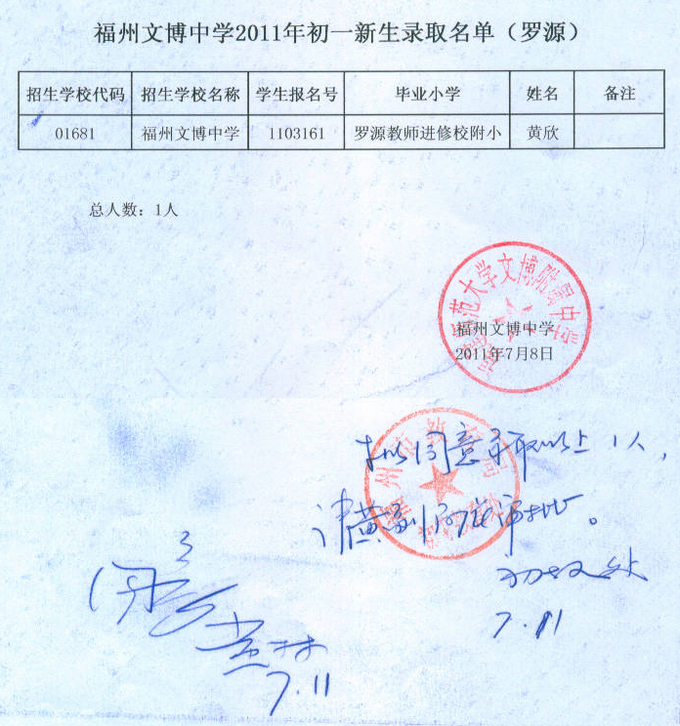 福州文博中学2011年初一新生录取名单（罗源）
招生学校代码 招生学校名称 学生报名号 毕业小学 姓名 备注
01681 福州文博中学 1103161 罗源教师进修校附小 黄欣
总人数：1人
范大学文博附属中学
福州文博中学
2011年7月8日
拟同意录取以上1人，
请黄副局长审批。
初教处
7.11
同意
7.11